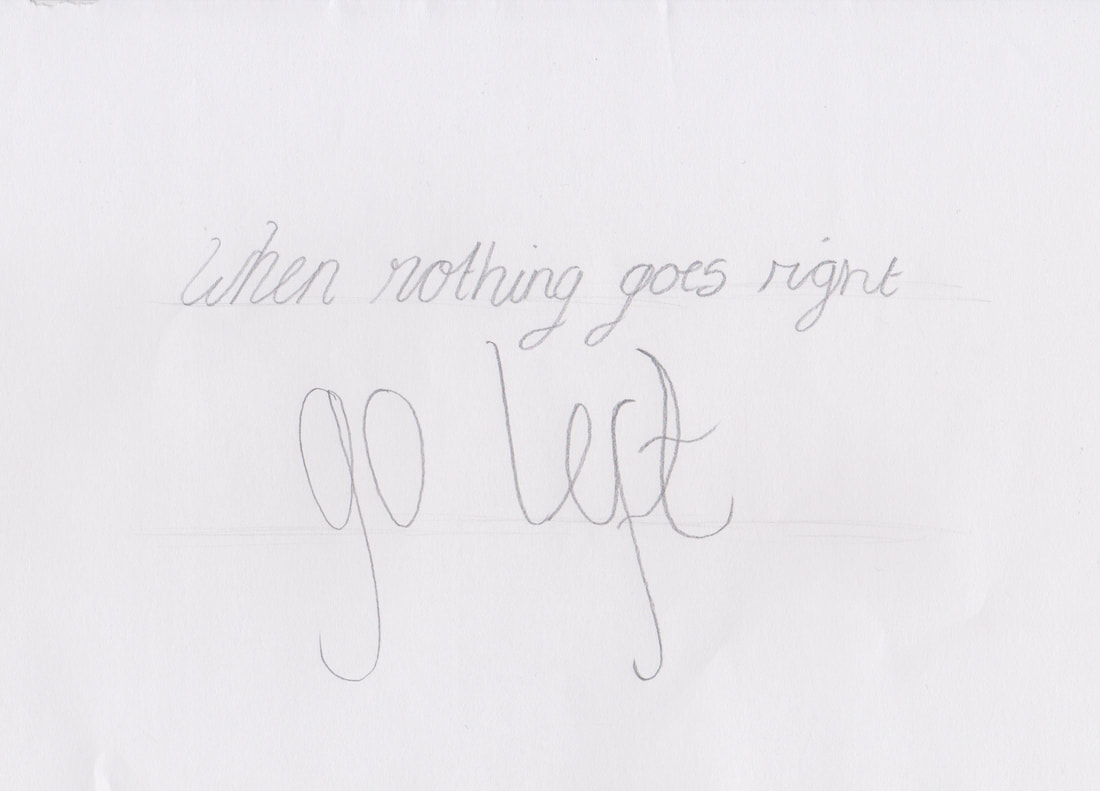 When nothing goes right
go left